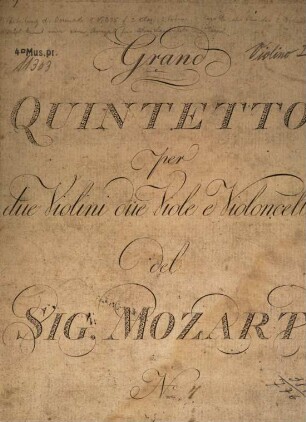 4° Mus. pr.
11303
Violino
Grand
QUINTETTO
per
due Violini due Viole e Violoncell
del
SIG. MOZART